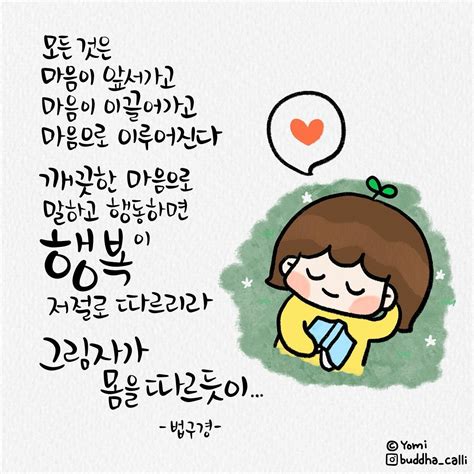 모든 것은
마음이 앞서가고
마음이 이끌어가고
마음으로 이루어진다
깨끗한 마음으로
말하고 행동하면
행복이
저절로 따르리라
그림자가
몸을 따르듯이...
-법구경-
© Yomi
buddha_calli